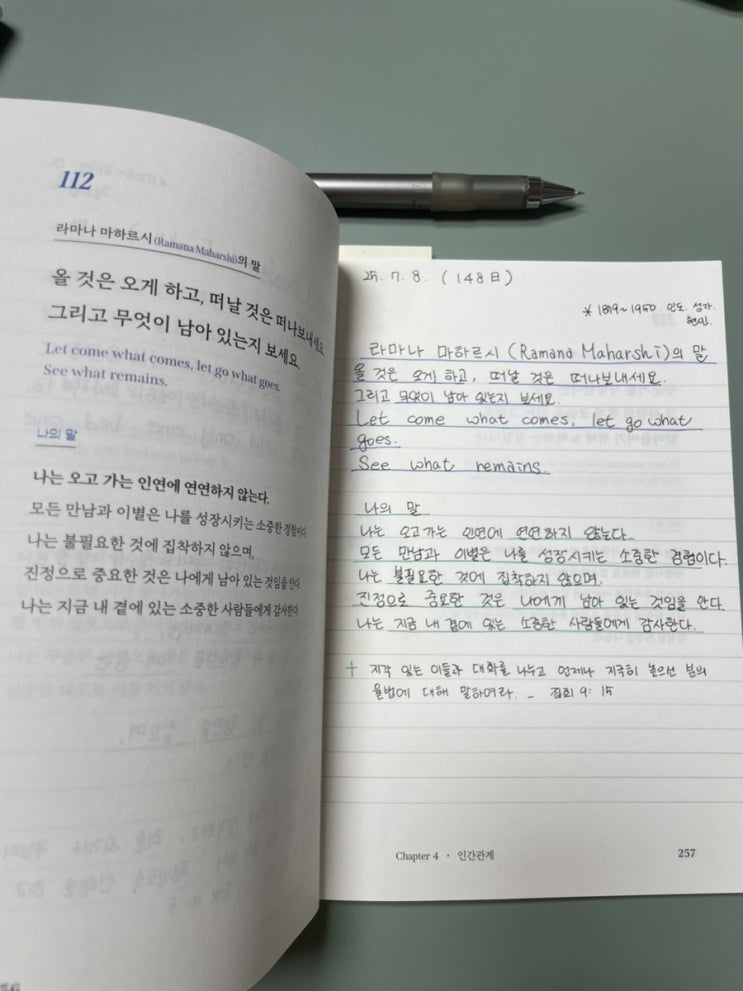 112
라마나 마하르시(Ramana Maharshi)의 말
올 것은 오게 하고, 떠날 것은 떠나보내세요.
그리고 무엇이 남아 있는지 보세요.
Let come what comes, let go what goes.
See what remains.
나의 말
나는 오고 가는 인연에 연연하지 않는다.
모든 만남과 이별은 나를 성장시키는 소중한 경험이다.
나는 불필요한 것에 집착하지 않으며,
진정으로 중요한 것은 나에게 남아 있는 것임을 안다.
나는 지금 내 곁에 있는 소중한 사람들에게 감사한다.
25. 7. 8. (148日)
* 1879~1950. 인도. 성자.
현인.
라마나 마하르시(Ramana Maharshi)의 말
올 것은 오게 하고, 떠날 것은 떠나보내세요.
그리고 무엇이 남아 있는지 보세요.
Let come what comes, let go what
goes.
See what remains.
나의 말
나는 오고가는 인연에 연연하지 않는다.
모든 만남과 이별은 나를 성장시키는 소중한 경험이다.
나는 불필요한 것에 집착하지 않으며,
진정으로 중요한 것은 나에게 남아 있는 것임을 안다.
나는 지금 내 곁에 있는 소중한 사람들에게 감사한다.
+ 지각 있는 이들과 대화를 나누고 언제나 지극히 높으신 분의
율법에 대해 말하여라. - 집회 9:15
Chapter 4 • 인간관계
257